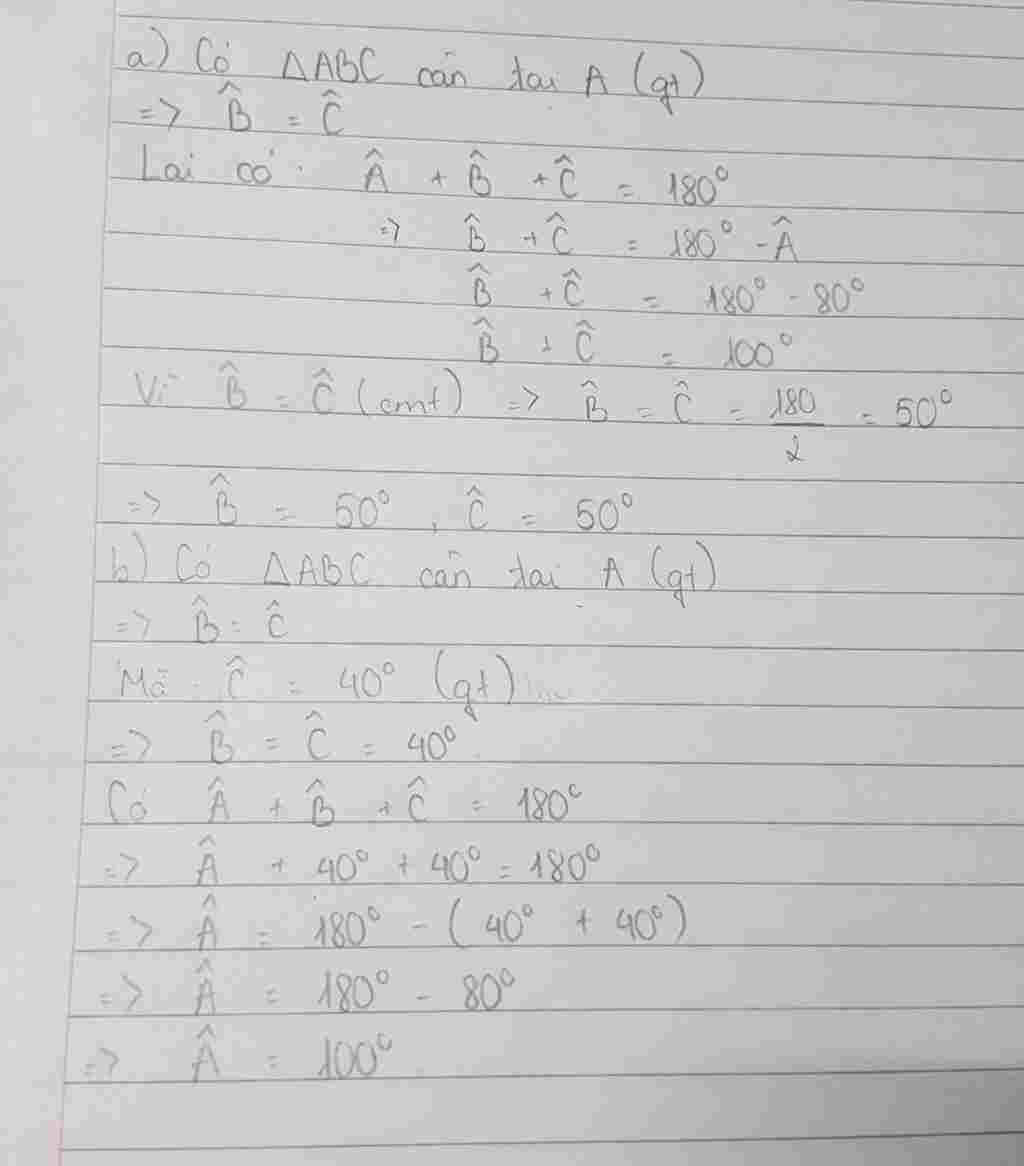 a) Có ΔABC cân tại A (gt)
=> B̂ = Ĉ
Lại có: Â + B̂ + Ĉ = 180°
=> B̂ + Ĉ = 180° - Â
B̂ + Ĉ = 180° - 80°
B̂ + Ĉ = 100°
Vì B̂ = Ĉ (cmt) => B̂ = Ĉ = 180/2 = 50°
=> B̂ = 50°, Ĉ = 50°
b) Có ΔABC cân tại A (gt)
=> B̂ = Ĉ
Mà Ĉ = 40° (gt)
=> B̂ = Ĉ = 40°
Có Â + B̂ + Ĉ = 180°
=> Â + 40° + 40° = 180°
=> Â = 180° - (40° + 40°)
=> Â = 180° - 80°
=> Â = 100°